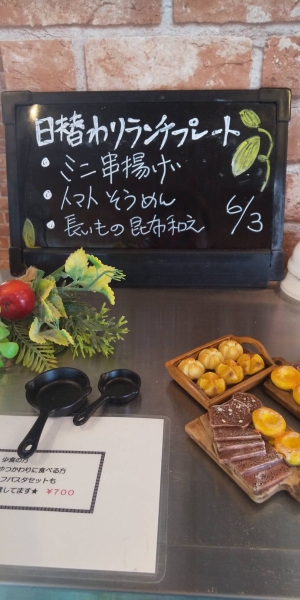 日替わりランチプレート
・ミニ串揚げ
・トマトそうめん
・長いもの昆布和え
6/3
少食の方
やつかわりに食べる方
フパスタセットも
意してます★ ¥700